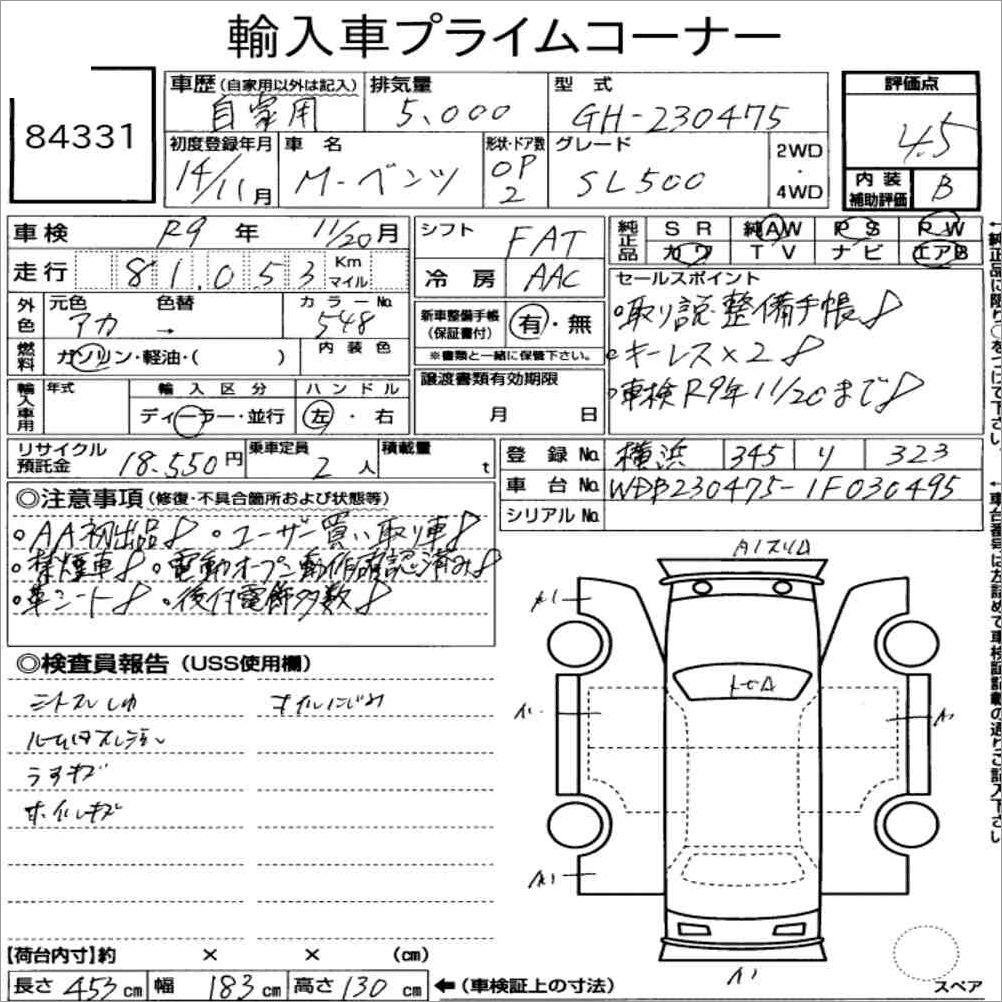 輸入車プライムコーナー
84331
車歴 (自家用以外は記入) 自家用
排気量 5,000
型式 GH-230475
評価点 4.5
初度登録年月 14/11月
車名 M-ベンツ
形状・ドア数 OP 2
グレード SL500
2WD ・ 4WD
内装補助評価 B
車検 R9年 11/20月
シフト FAT
純正品 SR 純AW PS PW
カワ TV ナビ エアB
走行 81,053 Km マイル
冷房 AAC
セールスポイント
外色 元色 アカ 色替 → カラーNo. 548
新車整備手帳 (保証書付) 有・無
※書類と一緒に保管下さい。
・取り説・整備手帳
・キーレス×2
・車検R9年11/20まで
燃料 ガソリン・軽油・( ) 内装色
輸入車用 年式 輸入区分 ディーラー・並行 ハンドル 左・右
譲渡書類有効期限 月 日
リサイクル預託金 18,550円
乗車定員 2人
積載量 t
登録No. 横浜 345 リ 323
車台No. WDB230475-1F030495
シリアルNo.
◎注意事項 (修復・不具合箇所および状態等)
・AA初出品 ・ユーザー買い取り車
・禁煙車 ・電動オープン動作確認済み
・革シート ・後付電飾多数
◎検査員報告 (USS使用欄)
オイルにじみ
うすキズ
ホイルキズ
A1
A1
A1
A1
【荷台内寸】約 × × (cm)
長さ 453cm 幅 183cm 高さ 130cm
←(車検証上の寸法)
スペア
←純正品に限り○をつけて下さい。
←車台番号は左詰めで車検証記載の通りご記入下さい